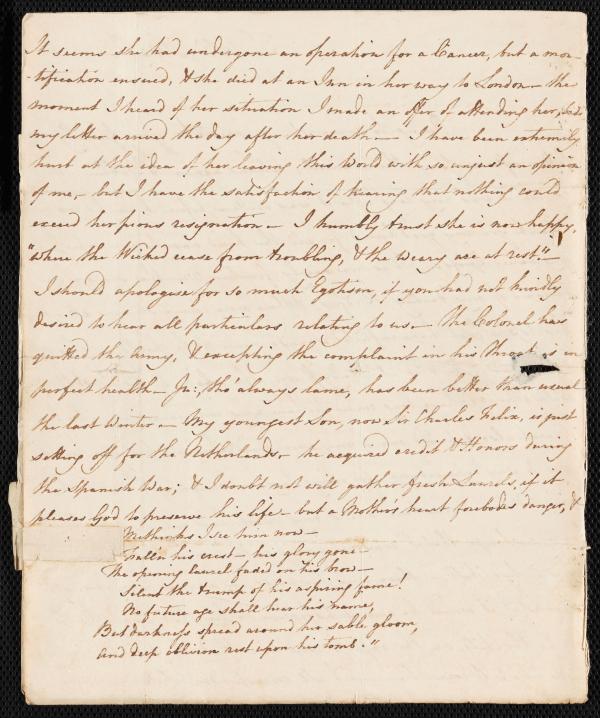 It seems she had undergone an operation for a Cancer, but a mor-
-tification ensued, & she died at an Inn in her way to London - the
moment I heard of her situation I made an offer of attending her,
my letter arrived the day after her death - I have been extremely
hurt at the idea of her leaving this World with so unjust an opinion
of me, - but I have the satisfaction of hearing that nothing could
exceed her pious resignation - I humbly trust she is now happy,
"where the Wicked cease from troubling, & the weary are at rest." -
I should apologise for so much Egotism, if you had not kindly
desired to hear all particulars relating to us. - The Colonel has
quitted the Army, & excepting the complaint in his Throat is in
perfect health - Jn:, tho' always lame, has been better than usual
the last Winter - My youngest Son, now Sir Charles Felix, is just
setting off for the Netherlands - he acquired credit & Honors during
the Spanish War; & I doubt not will gather fresh Laurels, if it
pleases God to preserve his life - but a Mothers heart forebodes danger, &
Methinks I see him now -
Fall'n his crest - his glory gone -
The opening laurel faded on his brow -
Silent the trump of his aspiring fame!
No future age shall hear his name,
But darkness spread around her sable gloom,
And deep oblivion rest upon his tomb."